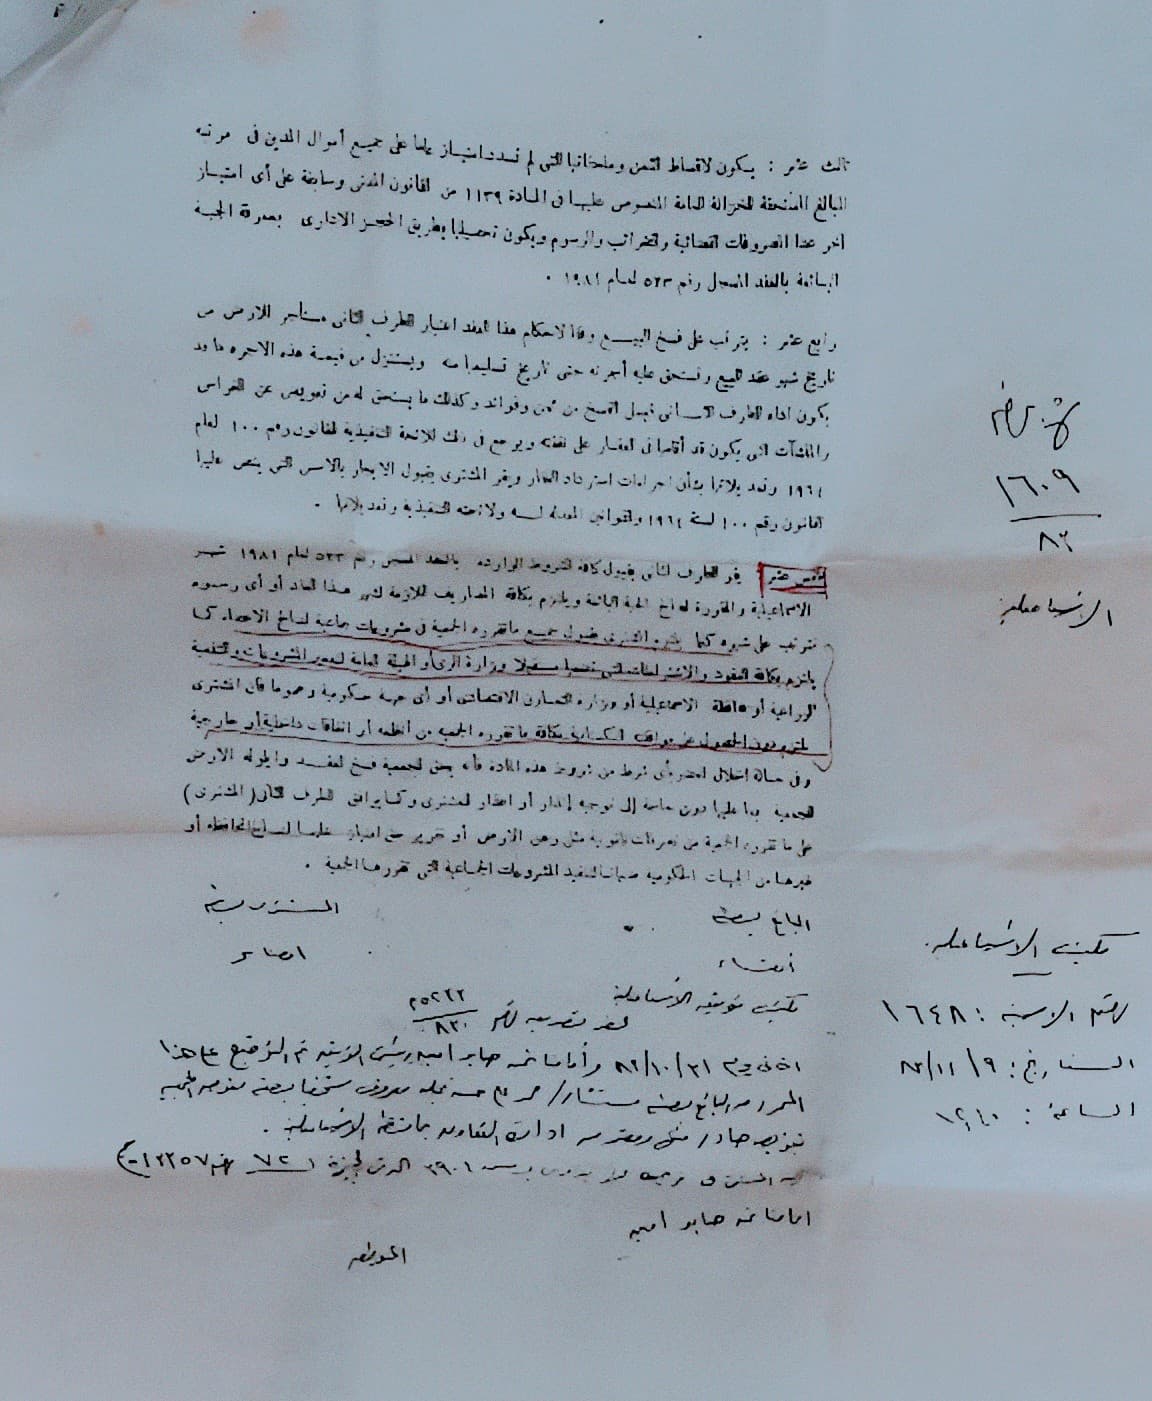 ثالث عشر : يكون لاقساط الثمن وملحقاتها التى لم تسدد امتياز عاما على جميع أموال المدين فى مرتبة
المبالغ المستحقة للخزانة العامة المنصوص عليها فى المادة ١١٣٩ من القانون المدنى وسابقة على أى امتياز
آخر عدا المصروفات القضائية والضرائب والرسوم ويكون تحصيلها بطريق الحجز الادارى بمعرفة الجهة
البائعة بالعقد المسجل رقم ٥٢٣ لعام ١٩٨١ .
رابع عشر : يترتب على فسخ البيع وفقا لاحكام هذا العقد اعتبار الطرف الثانى مستأجر للارض من
تاريخ شهر عقد البيع وتستحق عليه أجرته حتى تاريخ تسليمها منه ويستنزل من قيمة هذه الاجره ما قد
يكون اداه الطرف الثانى قبل الفسخ من ثمن وفوائد وكذلك ما يستحق له من تعويض عن الغراس
والمنشآت التى يكون قد أقامها فى العقار على نفقته ويرجع فى ذلك للائحة التنفيذية للقانون رقم ١٠٠ لعام
١٩٦٤ وتعديلاتها بشأن اجراءات استرداد العقار ويقر المشترى بقبول الايجار بالاسس التى ينص عليها
القانون رقم ١٠٠ لسنة ١٩٦٤ والقوانين المعدلة له ولائحته التنفيذية وتعديلاتها .
خامس عشر يقر الطرف الثانى بقبول كافة الشروط الوارده بالعقد المسجل رقم ٥٢٣ لعام ١٩٨١ شهر
الاسماعيلية والمقررة لصالح الجهة البائعة ويلتزم بكافة المصاريف اللازمة لشهر هذا العقد أو أى رسوم
تترتب على شهره كما يلتزم المشترى بقبول جميع ما تقرره الجمعية فى مشروعات جماعية لصالح الاعضاء كما
يلتزم بكافة القيود والاشتراطات التى تضعها مستقبلا وزارة الرى أو الهيئة العامة لتعمير المشروعات والتنمية
الزراعية أو محافظة الاسماعيلية أو وزارة التعاون الاقتصادى أو أى جهة حكومية وعموما فان المشترى
يلتزم دون الحصول على موافقته الكتابية بكافة ما تقرره الجمعية من أنظمة أو اتفاقات داخلية أو خارجية
وفى حالة اخلال العضو بأى شرط من شروط هذه المادة فأنه يحق للجمعية فسخ العقد وايلولة الارض
للجمعية بما عليها دون حاجة إلى توجيه إنذار أو اعذار للمشترى وكما يوافق الطرف الثانى (المشترى)
على ما تقرره الجمعية من تصرفات قانونية مثل رهن الارض أو تقرير حق امتياز عليها لصالح المحافظة أو
غيرها من الجهات الحكومية ضمانا لتنفيذ المشروعات الجماعية التى تقررها الجمعية .
البائع بصفته
المشترى بصفته
امضاء
امضاء
مكتب توثيق الاسماعيلية
محضر تصديق رقم
٨٣٠
انه فى يوم ٣١/١٠/٨٢ وأمامنا نحن صابر امين رئيس التوثيق تم التوقيع على هذا
المحرر من البائع بصفته مستشار/
بتفويض صادر
ادارة التعاون بمحافظة الاسماعيلية .
٧٢
امامنا نحن صابر امين
الموظف
شهر رقم
١٦٠٩
٨٢
الاسماعيلية
مكتب الاسماعيلية
رقم الاسبقية : ١٦٤٨
التاريخ : ٩/١١/٨٢
الساعة :